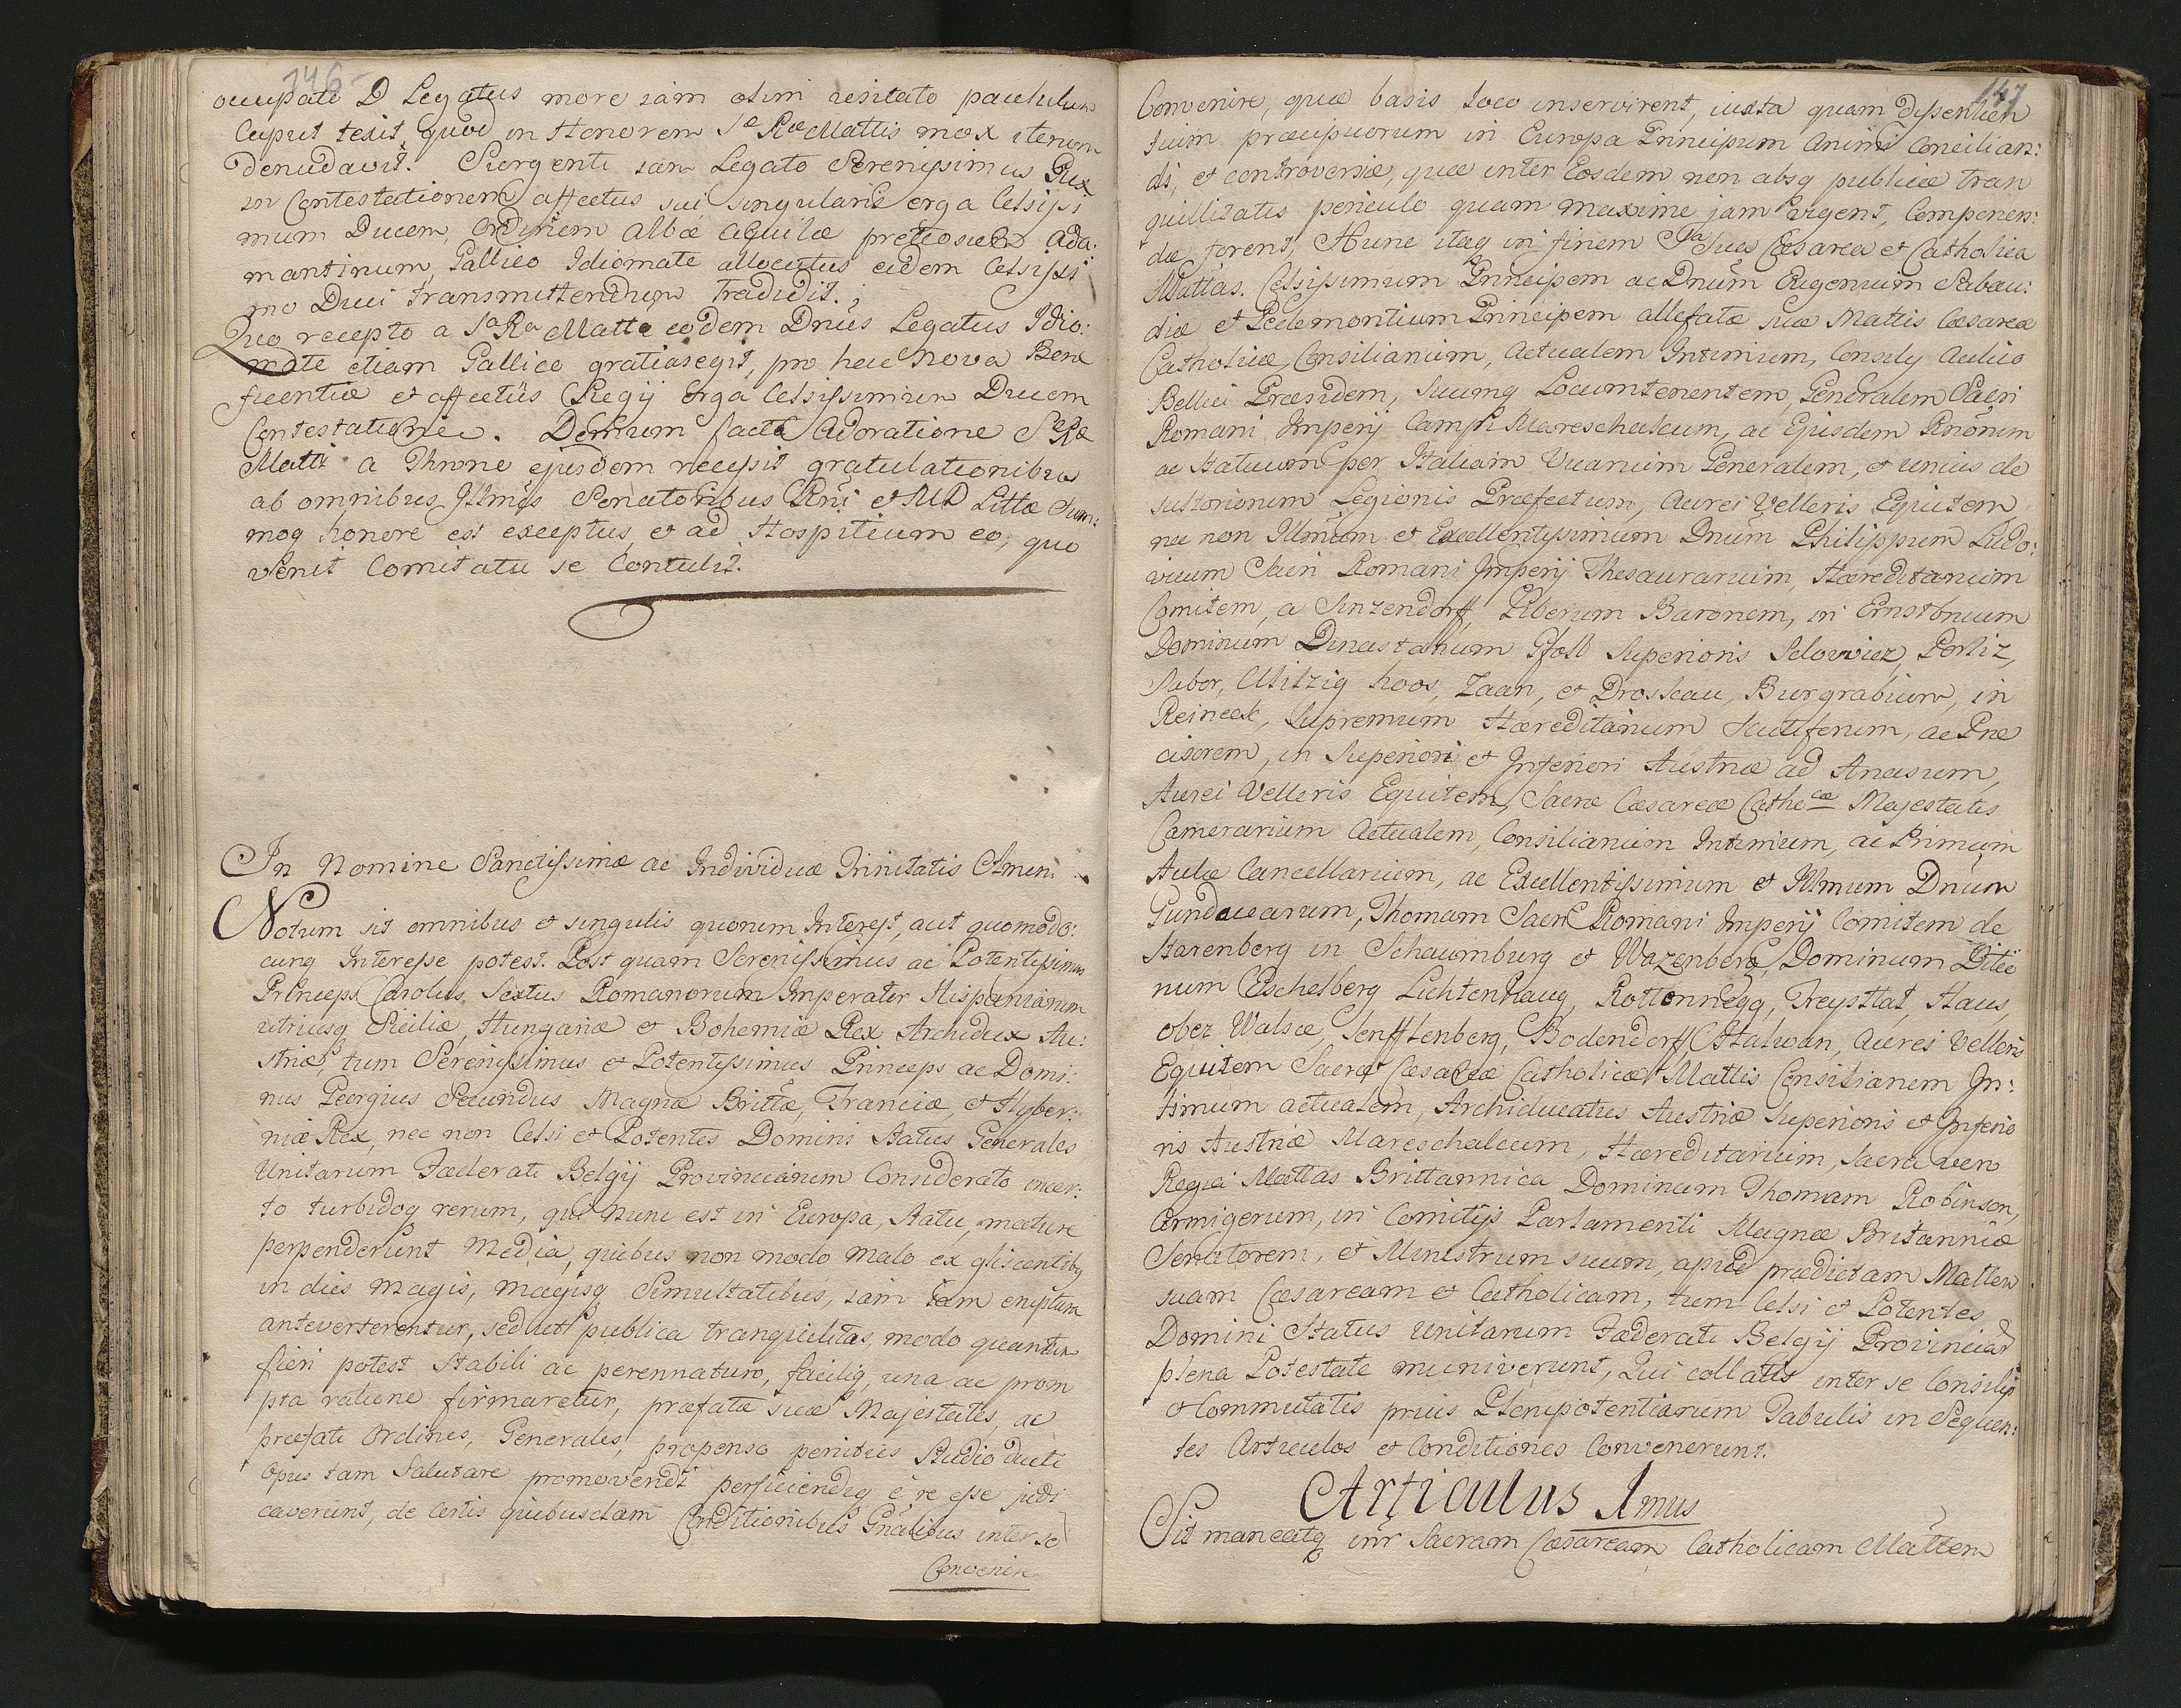 146
occupati D Legatus more iam olim usitato paululum
Caput texit quod in Honorem Sae Rae Mattis mox iterum
denudavit. Surgenti iam Legato Serenissimus Rex
in Contestationem affectus sui singularis erga Celsissi
mum Ducem, Ordinem albæ aquilæ pretiosum Ada:
mantinum, Gallico Idiomate allocutus eidem Celsissi
mo Duci transmittendum tradidit.;
Quo recepto a Sa Ra Matte eodem Dnus Legatus Idio:
mate etiam Gallico gratias egit, pro hac nova Bene
ficentiæ et affectûs Regij Erga Celsissimum Ducem
Contestatione. Demum facta Adoratione Sae Rae
Matti a Throno ejusdem recessit gratulationibus
ab omnibus Illmis Senatoribus Rni et MD Littæ Sum:
moq honore est exceptus, et ad Hospitium eo, quo
venit Comitatu se Contulit.
In Nomine Sanctissimæ ac Individuæ Trinitatis Amen.
Notum sit omnibus et singulis quorum Interest, aut quomodo:
cunq Interesse potest. Post quam Serenissimus ac Potentissimus
Princeps Carolus Sextus Romanorum Imperator Hispaniarum
utriusq Siciliæ, Hungariæ et Bohemiæ Rex Archidux Au:
striæ, tum Serenissimus et Potentissimus Princeps ac Domi:
nus Georgius Secundus Magnæ Brittæ, Franciæ, et Hyber:
niæ Rex, nec non Celsi et Potentes Domini Status Generales
Unitarum Fæderati Belgij Provinciarum Considerato incer:
to turbidoq rerum, qui nunc est in Europa, Statu mature
perpenderunt media, quibus non modo malo ex gliscentibq
in dies magis, magisq Simultatibus, iam iam eruptura
anteverterentur, sed ut publica tranquilitas, modo quantum
fieri potest Stabili ac perennaturo, faciliq, una ac prom
pta ratione firmaretur, præfatæ suæ Majestates, ac
præfati Ordines, Generales, propenso penitus Studio ducti
Opus tam Salutare promovendi perficiendiq è re esse judi
caverunt, de Certis quibusdam Conditionibus Gnalibus inter se
Convenire
147
Convenire, quæ basis loco inservirent, iuxta quam dyssentien
tium præcipuorum in Europa Principum animi Concilian:
di, et controversiæ, quæ inter Eosdem non absq publicæ tran
quillitatis periculo quam maxime jam vigent, Componen:
dæ forent, Hunc itaq in finem Sa Sua Cæsarea et Catholica
Mattas. Celsissimum Principem ac Dnum Eugenium Sabau:
diæ et Pedemontium Principem allefatæ suæ Mattis Cæsareæ
Catholicæ, Consiliarium, Actualem Intimum, Consilij Aulico
Bellici Præsidem, Suumq Locumtenentem, Generalem Sacri
Romani Imperij Campi Mareschalcum, ac Ejusdem Rnorum
ac Statuum per Italiam Vicarium Generalem, et unius de
sultoriorum Legionis Præfectum, Aurei Velleris Equitem
nec non Illmum et Excellentissimum Dnum Philippum Ludo:
vicum Sacri Romani Imperij Thesaurarium, Hæreditarium
Comitem, a Sinzendorff, Liberum Baronem, in Ernstbruum
Dominum Dinastarum Gfoll Superioris Selowicz, Porliz,
Sabor, Mitzig hoos, Zaan, et Droskau, Burgrabium, in
Reineck, Supremum Hæreditarium Scutiferum, ac Præ
cisorem, in Superiori et Inferiori Austriæ ad Anasum,
Aurei Velleris Equitem, Sacræ Cæsareæ Cathocæ Majestatis
Camerarium Actualem, Consiliarium Intimum, ac Primum
Aulæ Cancellarium, ac Excellentissimum et Illmum Dnum
Gundacarum, Thomam Sacri Romani Imperij Comitem de
Starenberg in Schaumburg et Wazenberg, Dominum Ditio
num Eschelberg Lichtenhaug, Rottennegg, Freystlat, Haus,
ober Walsæ, Senfftenberg, Bodendorff, Hatwan, Aurei Velleris
Equitem Sacræ Cæsareæ Catholicæ Mattis Consiliarem In:
timum actualem, Archiducatus Austriæ Superioris et Inferio
ris Austriæ Mareschalcum, Hæreditarium, Sacra vero
Regia Mattas Brittannica Dominum Thomam Robinson,
Armigerum, in Comitijs Parlamenti Magnæ Britanniæ
Senatorem, et Ministrum suum, apud prædictam Mattem
suam Cæsaream et Catholicam, tum Celsi et Potentes
Domini Status Unitarum Fæderati Belgij Provinciar
plena Potestate muniverunt, Qui collatis inter se Consilijs
et Commutatis prius Plenipotentiarum Tabulis in Sequen:
tes Articulos et Conditiones Convenerunt.
Articulus 1mus
Sit maneatq intr Sacram Cæsaream Catholicam Mattem